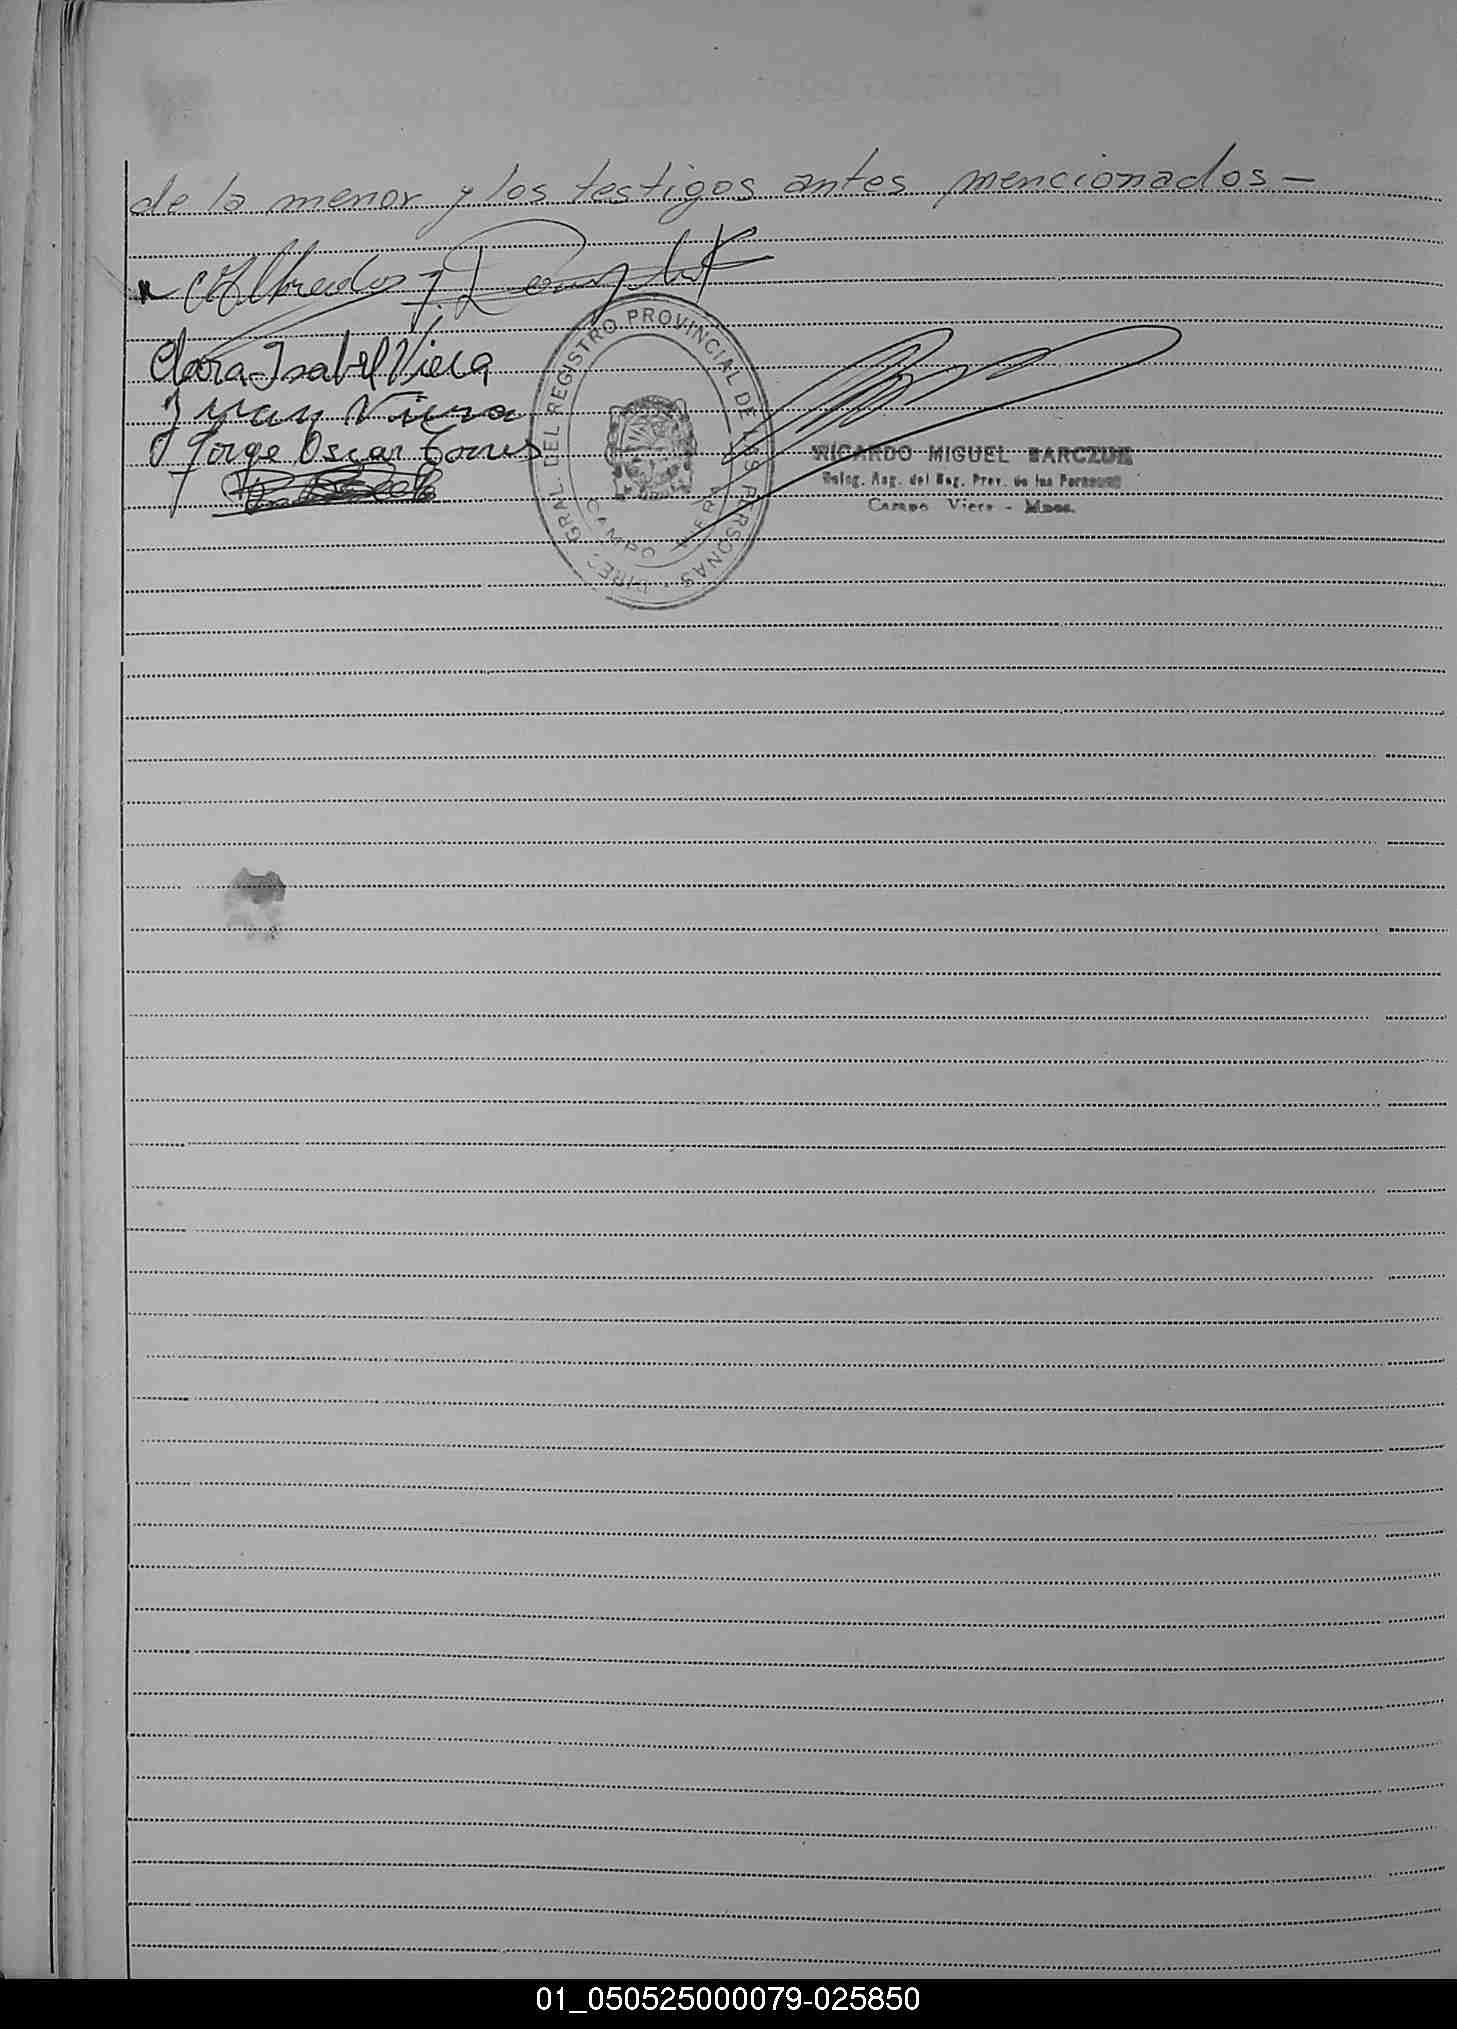 de la menor y los testigos antes mencionados —
Alfredo J.
Clara Isabel Viera
Juan Viera
Jorge Oscar Torres
DIREC. GRAL. DEL REGISTRO PROVINCIAL DE LAS PERSONAS
CAMPO VIERA
RICARDO MIGUEL BARCZUK
del Reg. Prov. de las Personas
Campo Viera - Mnes.
01_050525000079-025850